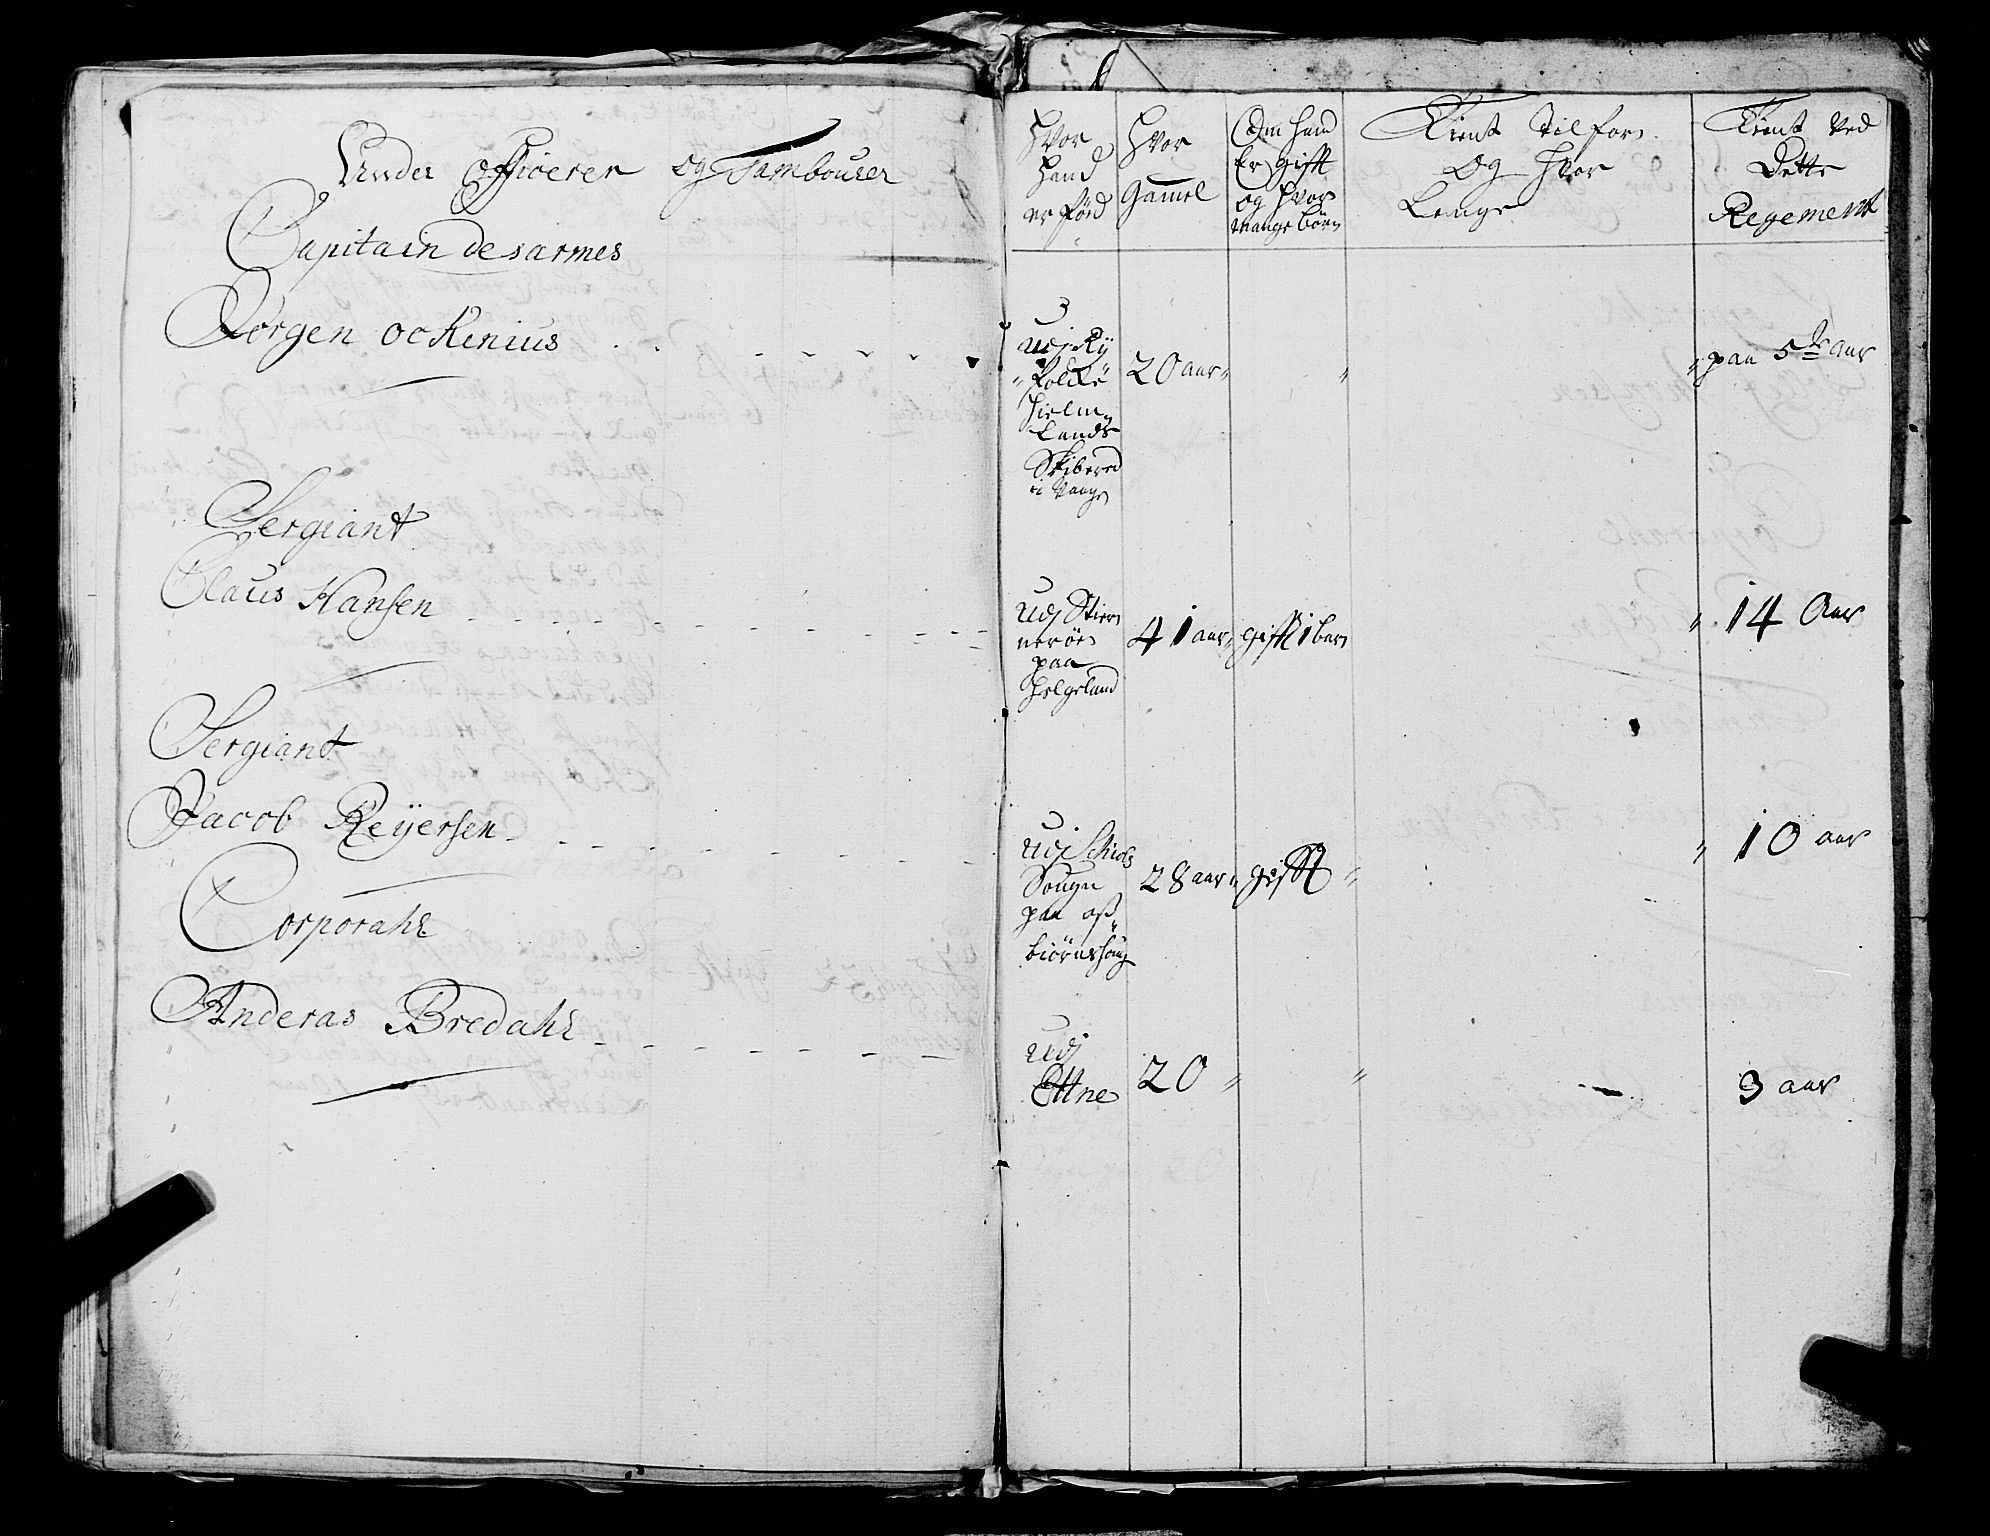 Under Officerer og Tambourer
Capitain desarmes
Jørgen Ockenius
Sergiant
Claus Hansen
Sergiant
Jacob Reÿersen
Corporahl
Anderas Bredahl
Hvor
Hand
er Föed
Hvor
Gamel
Om Hand
Er gifft
og Hvor
Mange börn
Tient Tilforn
Og Hvor
Lenge
Tient Ved
Dette
Regement
udj Ry
Folcke
Hielm
Lands
Skibered
i Vaage
20 aar
paa 5te aar
udj Stier
neröen
paa
Helgeland
41 aar
gifft 1 barn
14 Aar
udj
Sougn
paa
biörns
28 aar
gifft
10 aar
udj
Ettne
20
3 aar